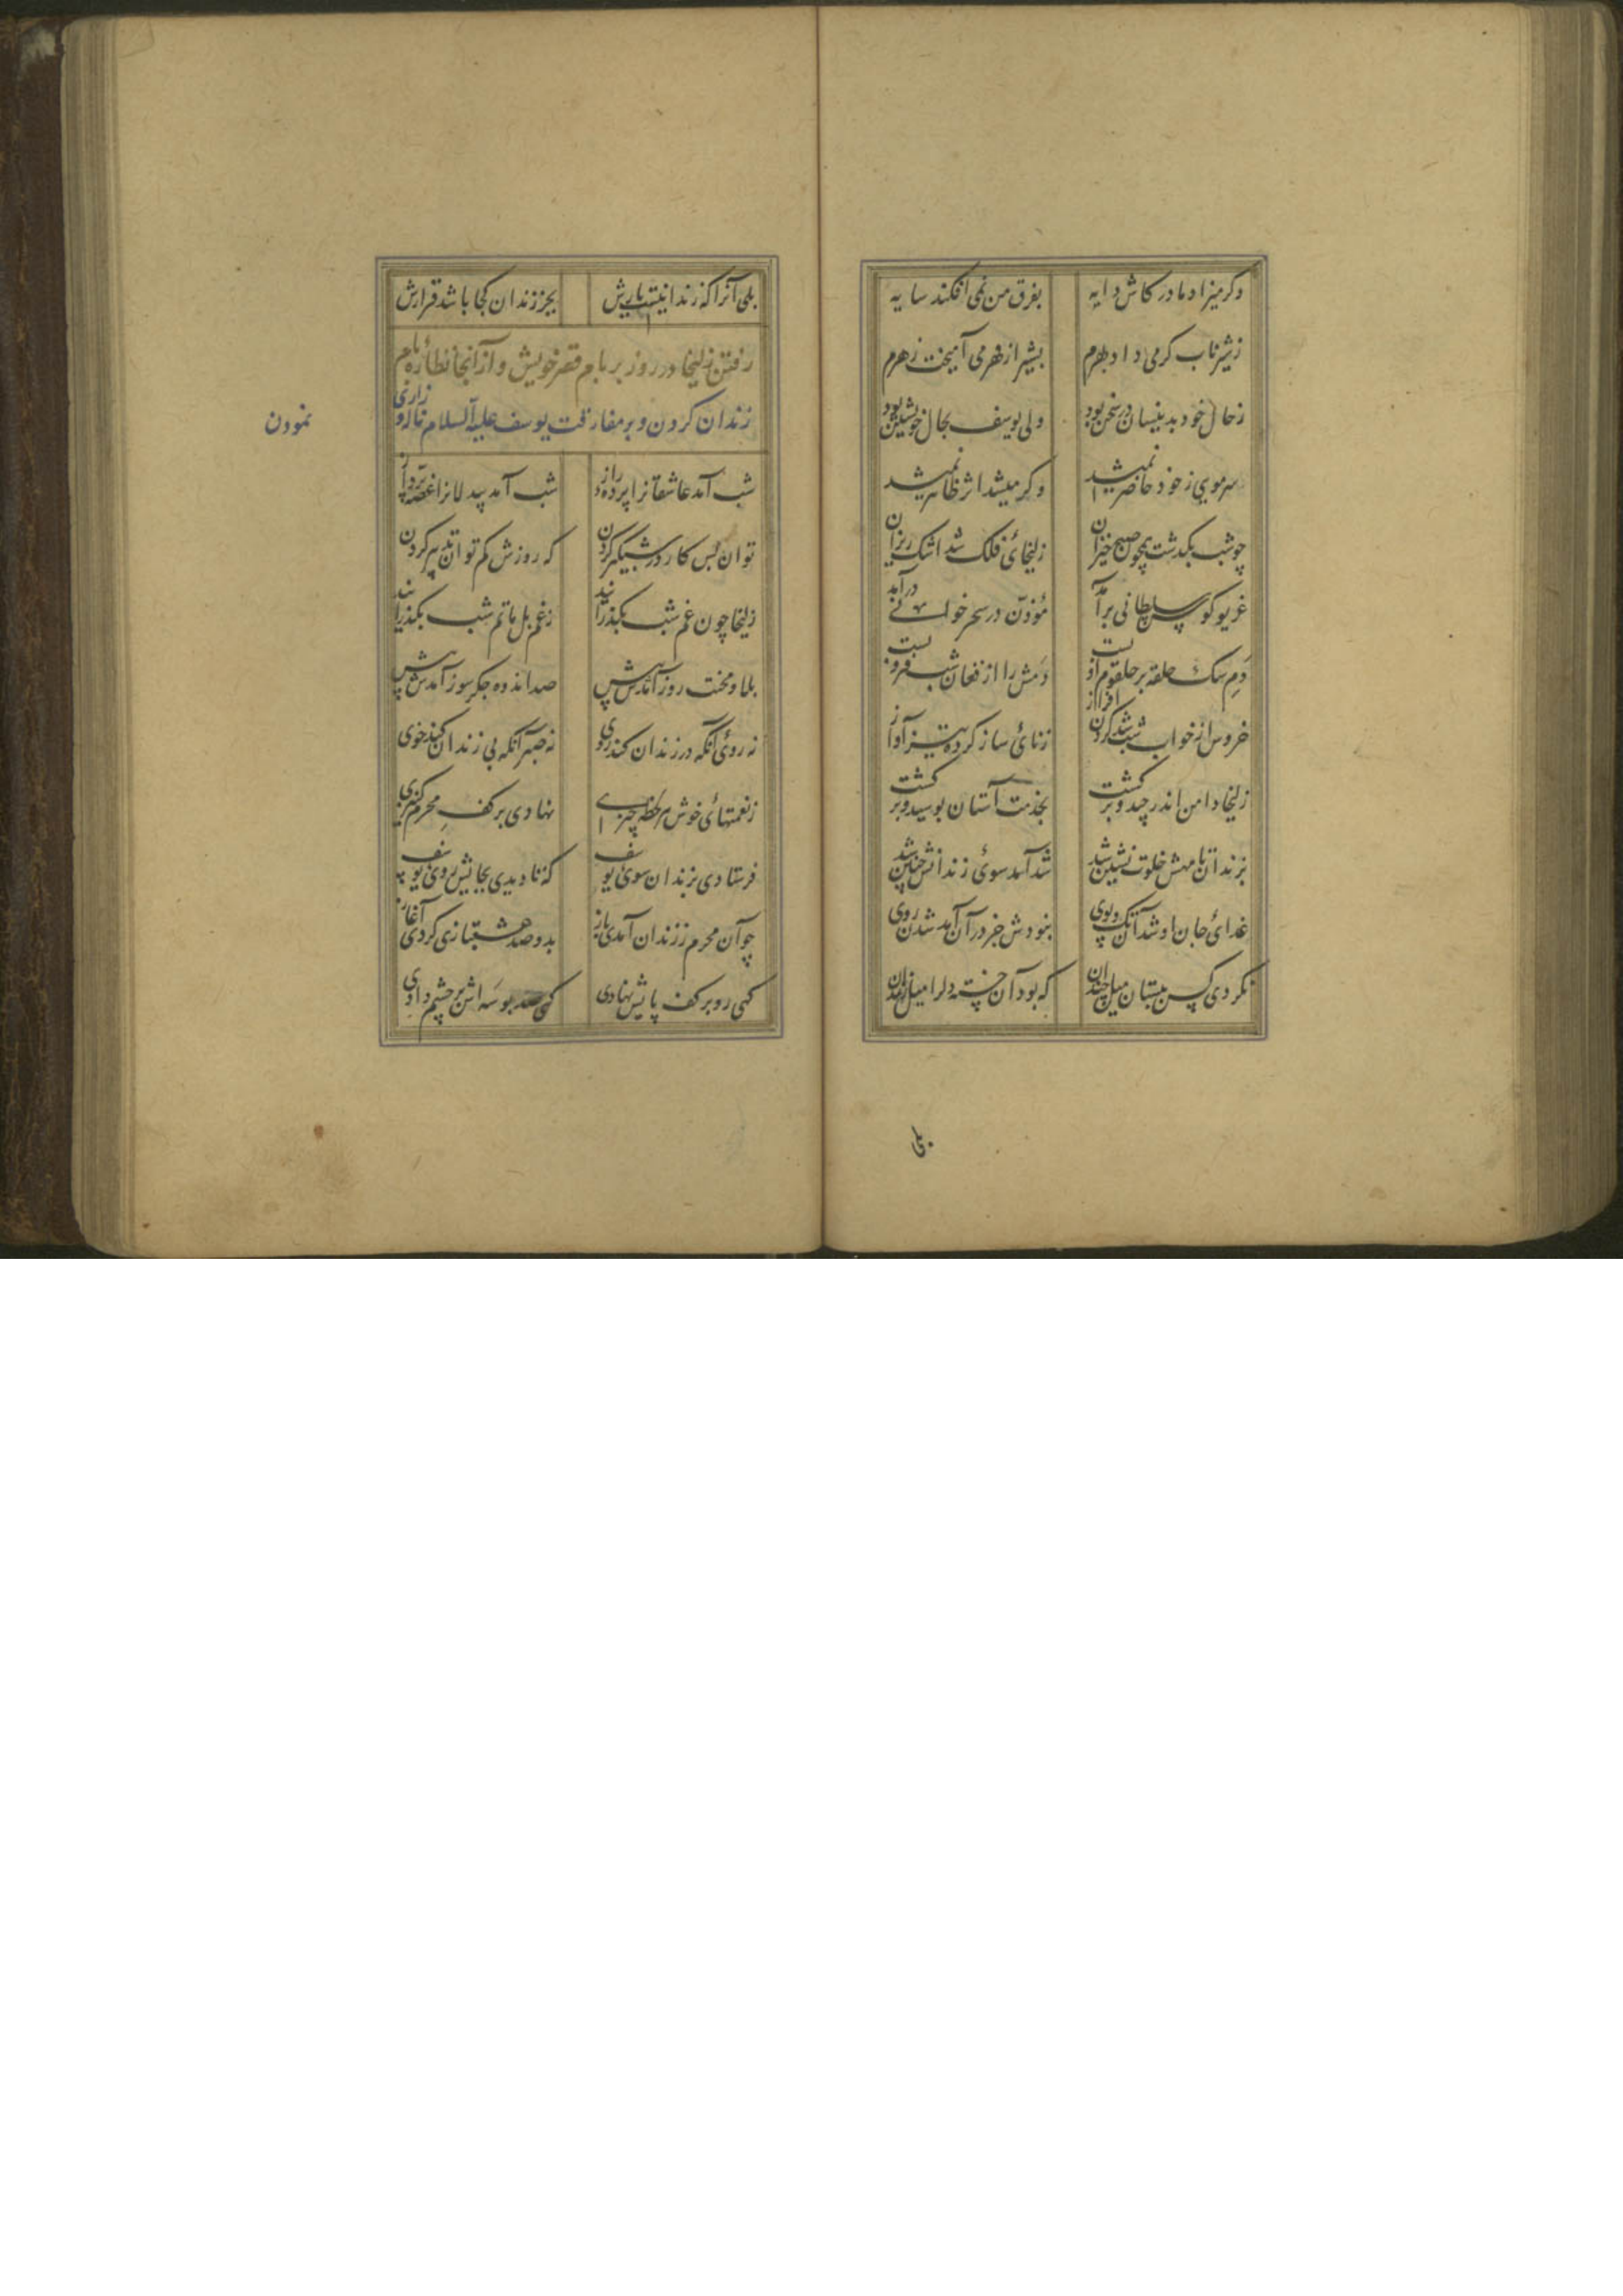 وکر میزاد مادر کاش دایه بفرق من نمی افکند سایه
ز شیر ناب کر می داد بهرم بشیر از قهر می آمیخت زهرم
ز حال خود بدینسان در سخن بود ولی یوسف بحال خویشتن بود
سر مویی ز خود حاضر نمیشد وکر میشد اثر ظاهر نمیشد
چو شب بکذشت همچون صبح خیزان زلیخائ فلک شد اشک ریزان
غریو کوس سلطانی برآمد مؤذن در سحر خوانی درآمد
دم سک حلقه بر حلقوم او بست دمش را از فغان شب فرو بست
خروس از خواب شب شد کردن افراز ز نائ ساز کرده تیز آواز
زلیخا دامن اندر چید و برکشت بخدمت آستان بوسید و برکشت
بزندان تا مهش خلوت نشین شد شد آمد سوئ زندانش چنین شد
غدائ جان او شد آن تک و پوی نبودش جز در آن آمد شدن روی
نکردی کس ببستان میل چندان که بود آن خسته دلرا میل زندان
بلی
بلی آنرا که زندانیست یارش بجز زندان کجا باشد قرارش
رفتن زلیخا در روز بر بام قصر خویش و از آنجا نظاره بام
زندان کردن و بر مفارقت یوسف علیه السلام ناله و زاری
نمودن
شب آمد عاشقانرا پرده راز شب آمد بیدلانرا غصه پرداز
توان بس کار در شبکیر کردن که روزش کم توان تدبیر کردن
زلیخا چون غم شب بکذراند ز غم بل ماتم شب بکذراند
بلا و محنت روز آمدش پیش صد اندوه جکرسوز آمدش پیش
نه روئ آنکه در زندان کند روی نه صبر آنکه بی زندان کند خوی
ز نعمتهائ خوش هر لحظه چیزی نهادی بر کف محرم کنیزی
فرستادی بزندان سوئ یوسف که تا دیدی بجایش روئ یوسف
چو آن محرم ز زندان آمدی باز بدو صد عشقبازی کردی آغاز
کهی رو بر کف پایش نهادی کهی صد بوسه اش بر چشم دادی